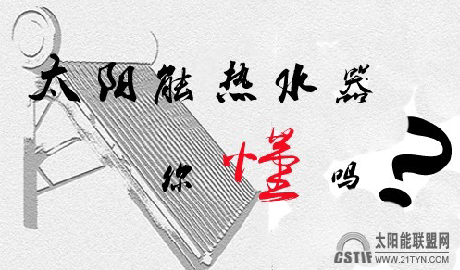 太阳能热水器
你懂吗?
太阳能联盟网
CSTIF WWW.21TYN.COM